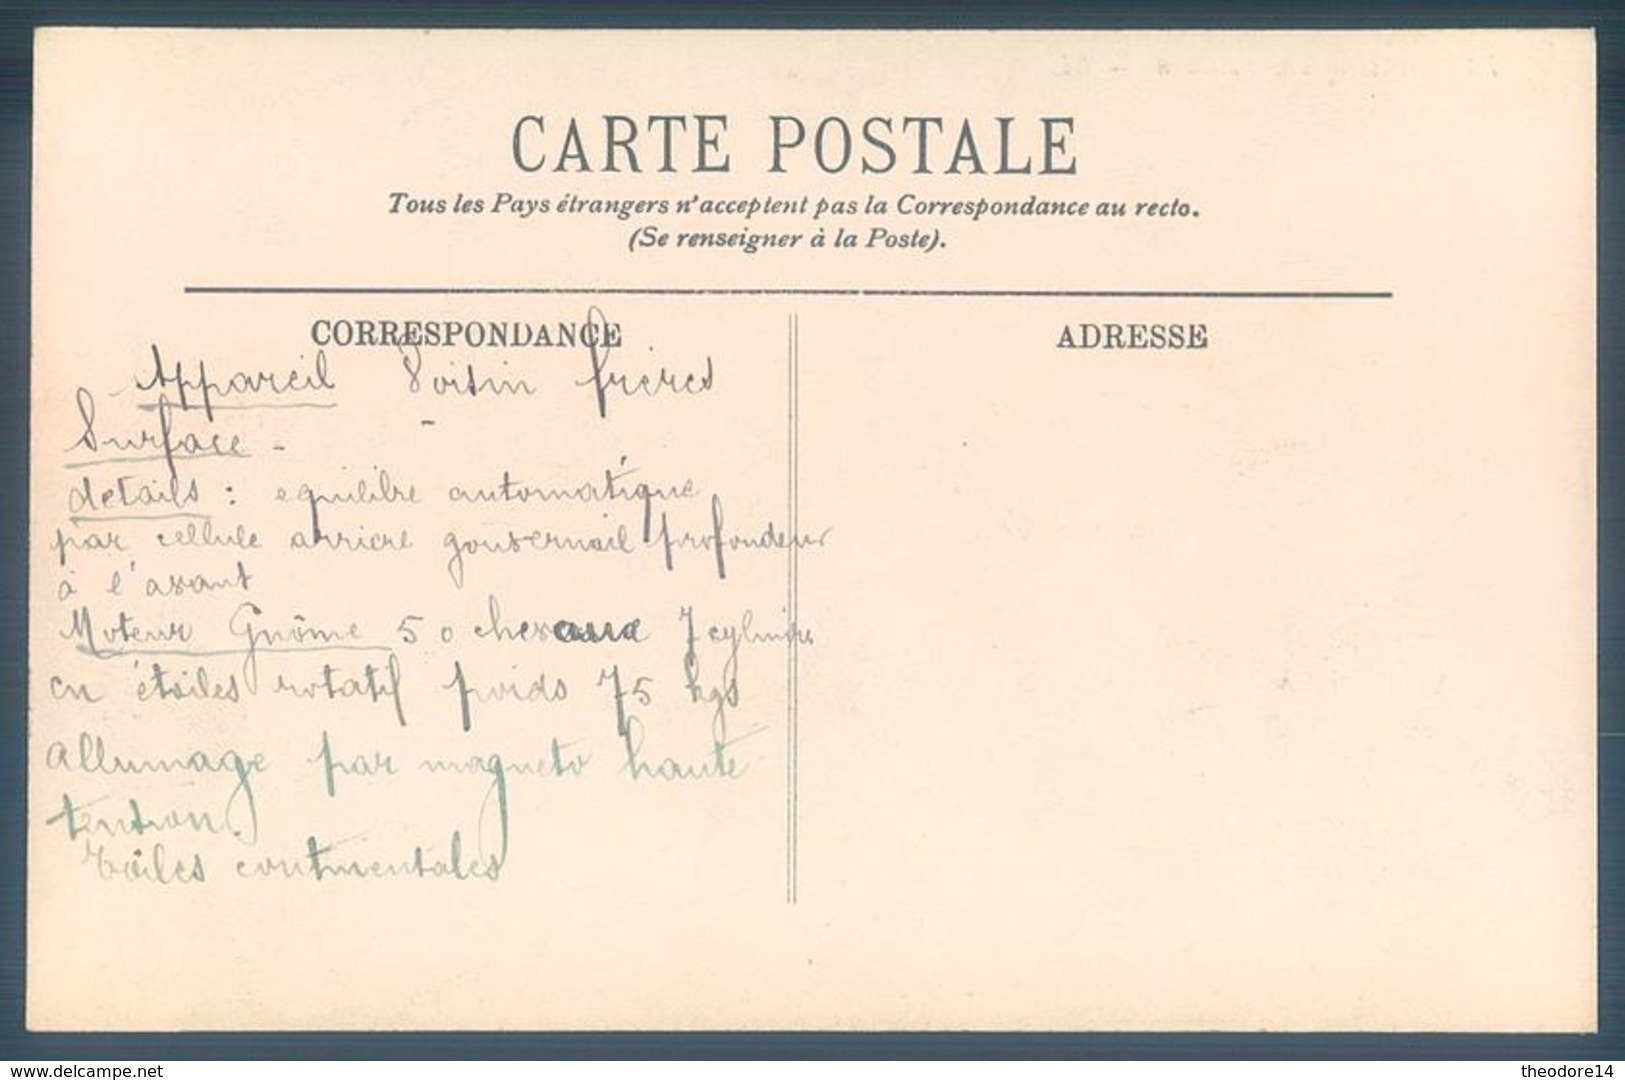 CARTE POSTALE
Tous les Pays étrangers n'acceptent pas la Correspondance au recto.
(Se renseigner à la Poste).
CORRESPONDANCE
Appareil Voisin frères
Surface -
details : equilibre automatique
par cellule arriere gouvernail profondeur
à l'avant
Moteur Gnôme 50 chevaux 7 cylindres
en étoiles rotatif poids 75 kgs
allumage par magneto haute
tension.
Toiles continentales
ADRESSE
www.delcampe.net
theodore14